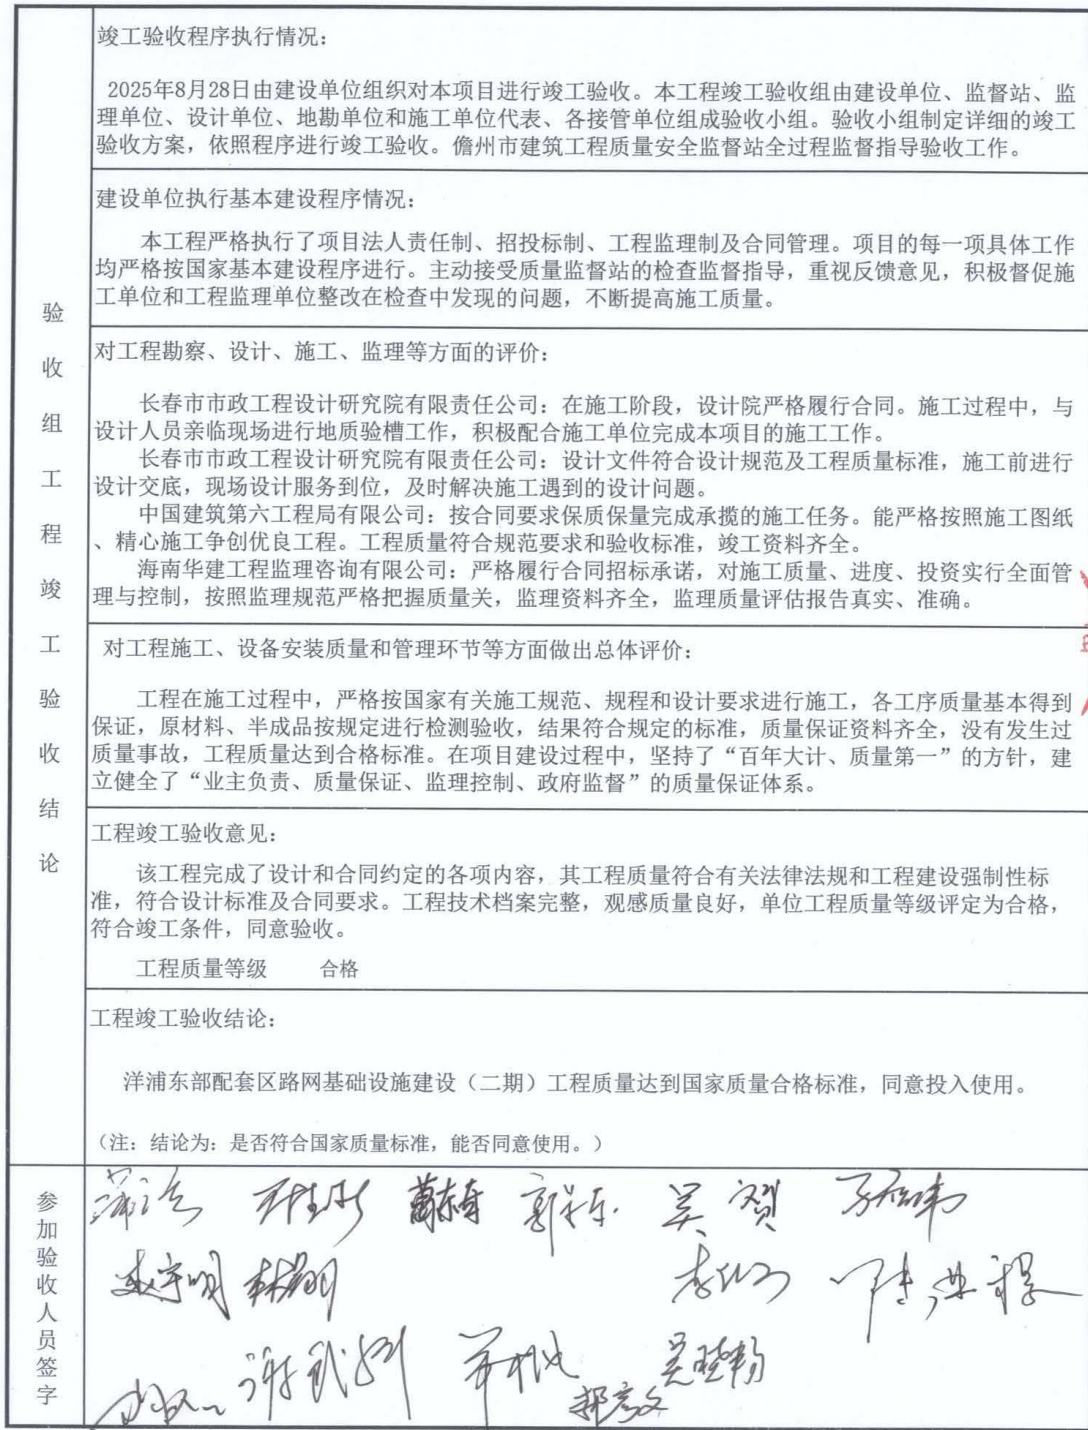 竣工验收程序执行情况：
2025年8月28日由建设单位组织对本项目进行竣工验收。本工程竣工验收组由建设单位、监督站、监
理单位、设计单位、地勘单位和施工单位代表、各接管单位组成验收小组。验收小组制定详细的竣工
验收方案，依照程序进行竣工验收。儋州市建筑工程质量安全监督站全过程监督指导验收工作。
建设单位执行基本建设程序情况：
本工程严格执行了项目法人责任制、招投标制、工程监理制及合同管理。项目的每一项具体工作
均严格按国家基本建设程序进行。主动接受质量监督站的检查监督指导，重视反馈意见，积极督促施
工单位和工程监理单位整改在检查中发现的问题，不断提高施工质量。
验收组工程竣工验收结论
对工程勘察、设计、施工、监理等方面的评价：
长春市市政工程设计研究院有限责任公司：在施工阶段，设计院严格履行合同。施工过程中，与
设计人员亲临现场进行地质验槽工作，积极配合施工单位完成本项目的施工工作。
长春市市政工程设计研究院有限责任公司：设计文件符合设计规范及工程质量标准，施工前进行
设计交底，现场设计服务到位，及时解决施工遇到的设计问题。
中国建筑第六工程局有限公司：按合同要求保质保量完成承揽的施工任务。能严格按照施工图纸
、精心施工争创优良工程。工程质量符合规范要求和验收标准，竣工资料齐全。
海南华建工程监理咨询有限公司：严格履行合同招标承诺，对施工质量、进度、投资实行全面管
理与控制，按照监理规范严格把握质量关，监理资料齐全，监理质量评估报告真实、准确。
对工程施工、设备安装质量和管理环节等方面做出总体评价：
工程在施工过程中，严格按国家有关施工规范、规程和设计要求进行施工，各工序质量基本得到
保证，原材料、半成品按规定进行检测验收，结果符合规定的标准，质量保证资料齐全，没有发生过
质量事故，工程质量达到合格标准。在项目建设过程中，坚持了“百年大计、质量第一”的方针，建
立健全了“业主负责、质量保证、监理控制、政府监督”的质量保证体系。
工程竣工验收意见：
该工程完成了设计和合同约定的各项内容，其工程质量符合有关法律法规和工程建设强制性标
准，符合设计标准及合同要求。工程技术档案完整，观感质量良好，单位工程质量等级评定为合格，
符合竣工条件，同意验收。
工程质量等级 合格
工程竣工验收结论：
洋浦东部配套区路网基础设施建设（二期）工程质量达到国家质量合格标准，同意投入使用。
（注：结论为：是否符合国家质量标准，能否同意使用。）
参加验收人员签字
吴贺
吴晓勃
郝彦文